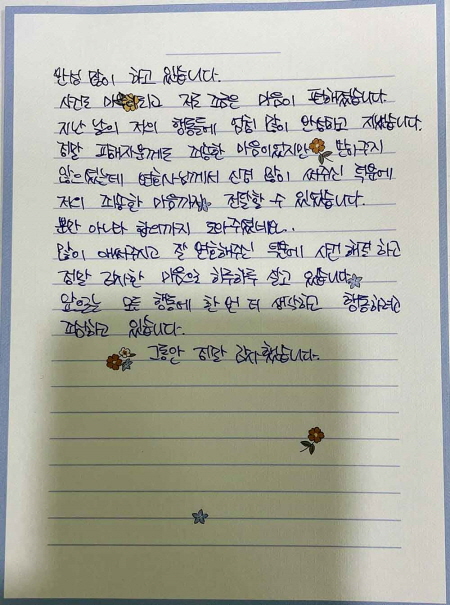 반성 많이 하고 있습니다.
사건도 마무리되고 저도 조금은 마음이 편해졌습니다.
지난 날의 저의 행동들에 엄청 많이 반성하고 지냈습니다.
정말 피해자분께도 죄송한 마음이었지만 받아주지
않으셨는데 변호사님께서 신경 많이 써주신 덕분에
저의 죄송한 마음까지 전달할 수 있었습니다.
뿐만 아니라 합의까지 도와주셨네요..
많이 애써주시고 잘 변호해주신 덕분에 사건 해결 하고
정말 감사한 마음으로 하루하루 살고 있습니다
앞으로는 모든 행동에 한 번 더 생각하고 행동하려고
다짐하고 있습니다.
그동안 정말 감사했습니다.